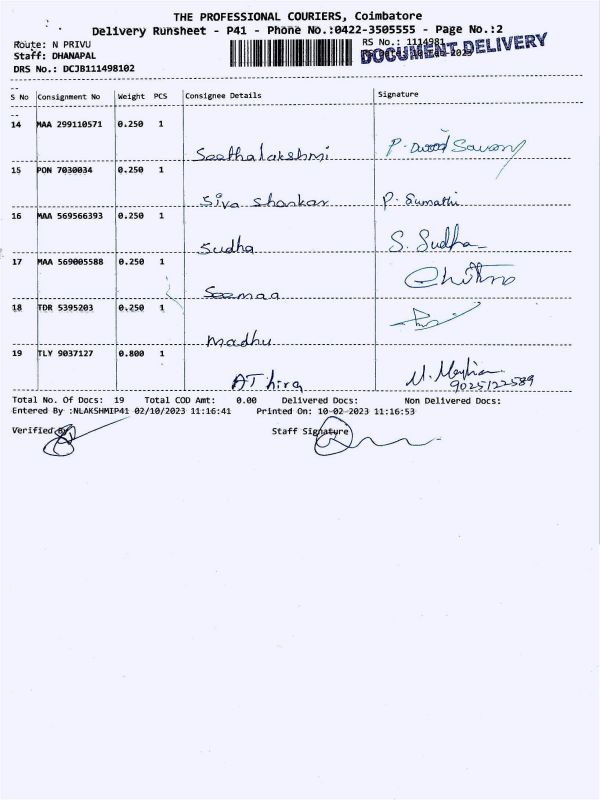 THE PROFESSIONAL COURIERS, Coimbatore
Delivery Runsheet - P41 - Phone No.:0422-3505555 - Page No.:2
Route: N PRIVU
RS No.: 1114981
DOCUMENT DELIVERY
Staff: DHANAPAL
DRS No.: DCJB111498102
S No Consignment No Weight PCS Consignee Details Signature
14 MAA 299110571 0.250 1
Seethalakshmi
15 PON 7030034 0.250 1
Siva Shankar P. Sumathi
16 MAA 569566393 0.250 1
Sudha S. Sudha
17 MAA 569005588 0.250 1
Seemaa
18 TDR 5395203 0.250 1
Madhu
19 TLY 9037127 0.800 1
AThira
9025122589
Total No. Of Docs: 19 Total COD Amt: 0.00 Delivered Docs: Non Delivered Docs:
Entered By :NLAKSHMIP41 02/10/2023 11:16:41 Printed On: 10-02-2023 11:16:53
Verified By Staff Signature